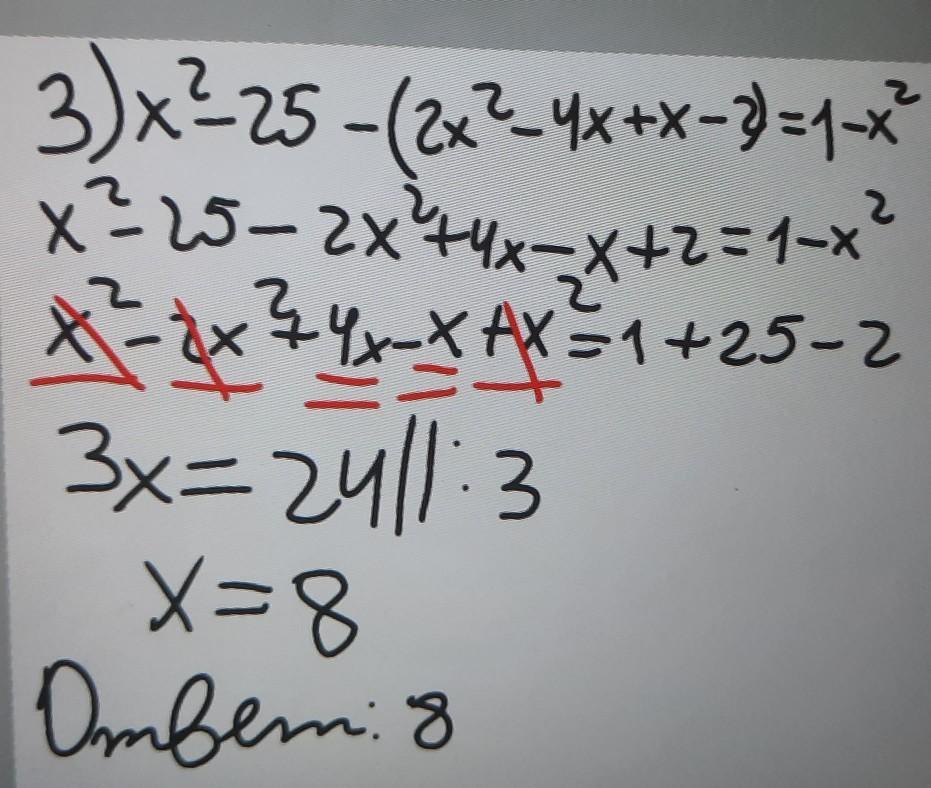 3) x² - 25 - (2x² - 4x + x - 2) = 1 - x²
x² - 25 - 2x² + 4x - x + 2 = 1 - x²
x² - 2x² + 4x - x + x² = 1 + 25 - 2
3x = 24 || : 3
x = 8
Ответ: 8